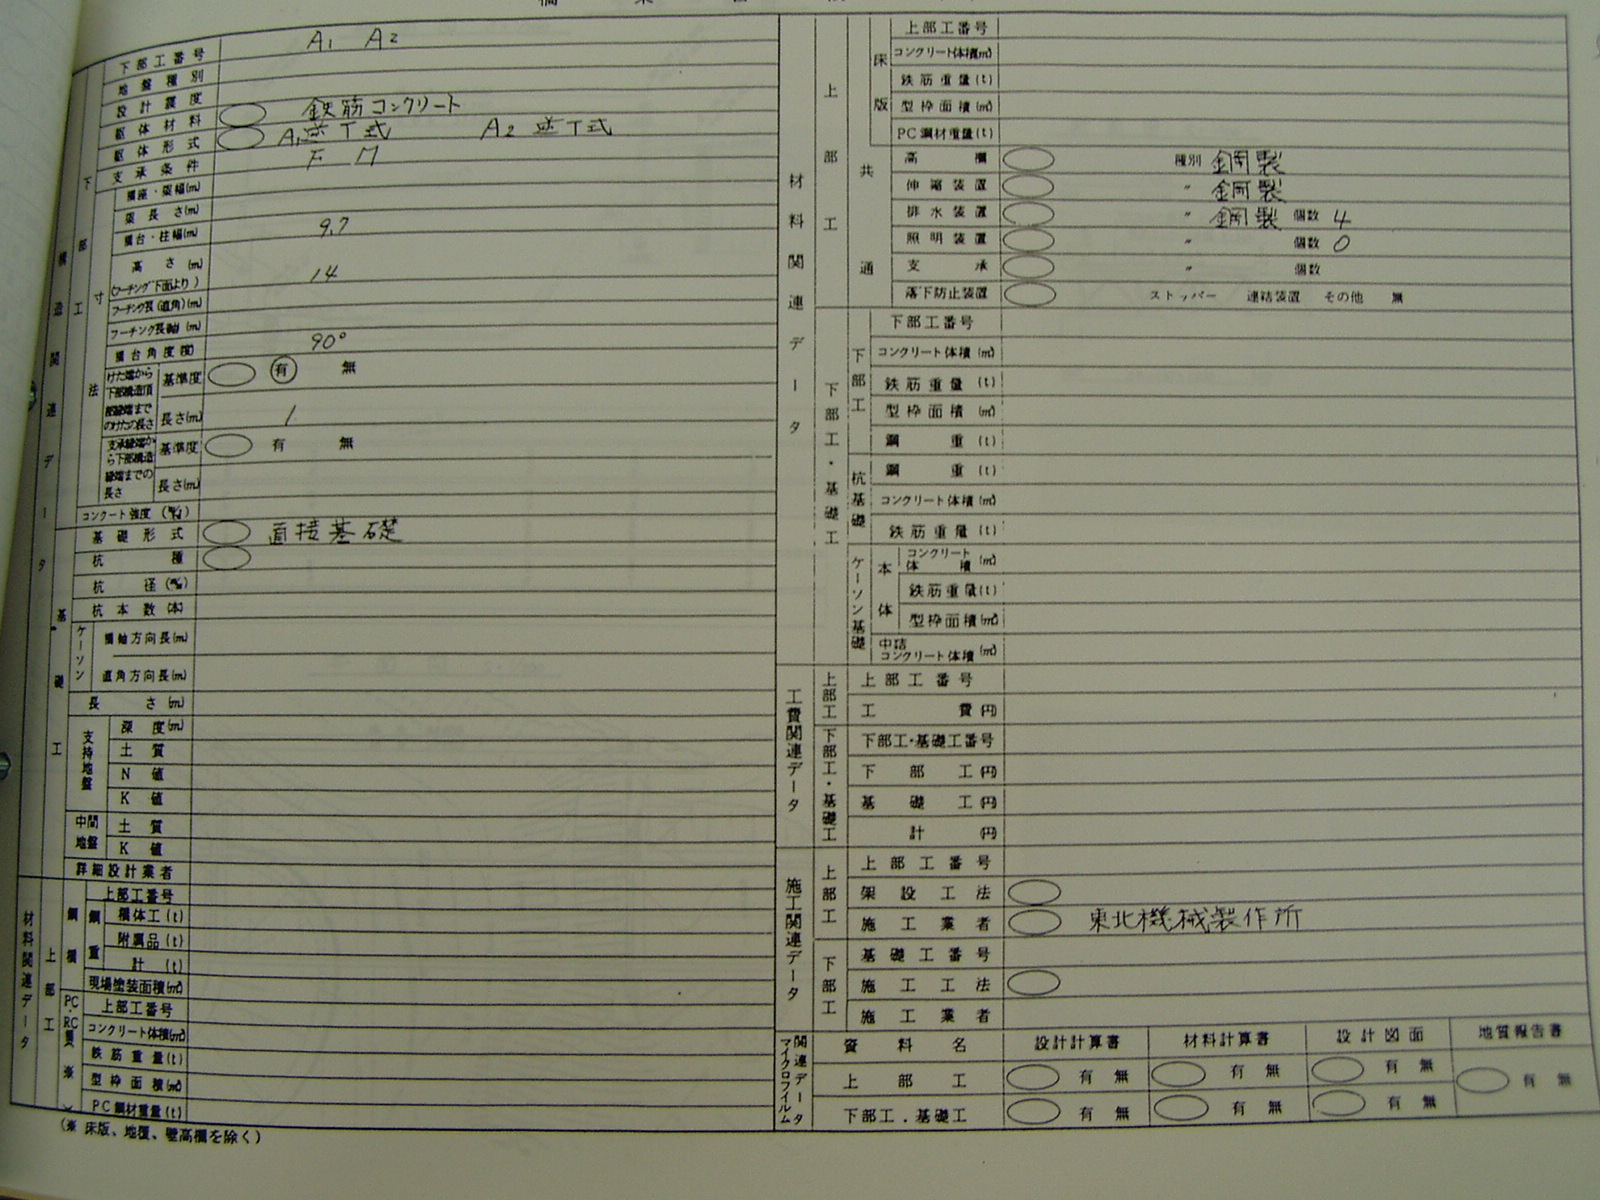 下部工番号 A1 A2
地盤種別
設計震度
躯体材料 鉄筋コンクリート
躯体形式 A1逆T式 A2逆T式
支承条件 F M
下部工
構造関連データ
寸法
橋座・梁幅(m)
梁長さ(m)
橋台・柱幅(m) 9.7
高さ(m)
(フーチング下面より) 14
フーチング長(直角)(m)
フーチング長(軸)(m)
橋台角度(度) 90°
けた端から下部構造頂部縁端までのけたの長さ
基準度 有 無
長さ(m) 1
支承縁端から下部構造縁端までの長さ
基準度 有 無
長さ(m)
コンクート強度
基礎工
基礎形式 直接基礎
杭種
杭径
杭本数(本)
ケーソン
橋軸方向長(m)
直角方向長(m)
長さ(m)
支持地盤
深度(m)
土質
N値
K値
中間地盤
土質
K値
詳細設計業者
材料関連データ
上部工
鋼橋
鋼重
上部工番号
橋体工(t)
附属品(t)
計(t)
現場塗装面積(㎡)
PC・RC橋(※)
上部工番号
コンクリート体積(㎥)
鉄筋重量(t)
型枠面積(㎡)
PC鋼材重量(t)
(※ 床版、地覆、壁高欄を除く)
材料関連データ
上部工
床版
上部工番号
コンクリート体積(㎥)
鉄筋重量(t)
型枠面積(㎡)
PC鋼材重量(t)
共通
高欄 種別 鋼製
伸縮装置 〃 鋼製
排水装置 〃 鋼製 個数 4
照明装置 〃 個数 0
支承 〃 個数
落下防止装置 ストッパー 連結装置 その他 無
下部工・基礎工
下部工
下部工番号
コンクリート体積(㎥)
鉄筋重量(t)
型枠面積(㎡)
鋼重(t)
杭基礎
鋼重(t)
コンクリート体積(㎥)
鉄筋重量(t)
ケーソン基礎
本体
コンクリート体積(㎥)
鉄筋重量(t)
型枠面積(㎡)
中詰コンクリート体積(㎥)
工費関連データ
上部工
上部工番号
工費(円)
下部工・基礎工
下部工・基礎工番号
下部工(円)
基礎工(円)
計(円)
施工関連データ
上部工
上部工番号
架設工法
施工業者 東北機械製作所
下部工
基礎工番号
施工工法
施工業者
関連データマイクロフイルム
資料名 設計計算書 材料計算書 設計図面 地質報告書
上部工 有 無 有 無 有 無 有 無
下部工.基礎工 有 無 有 無 有 無